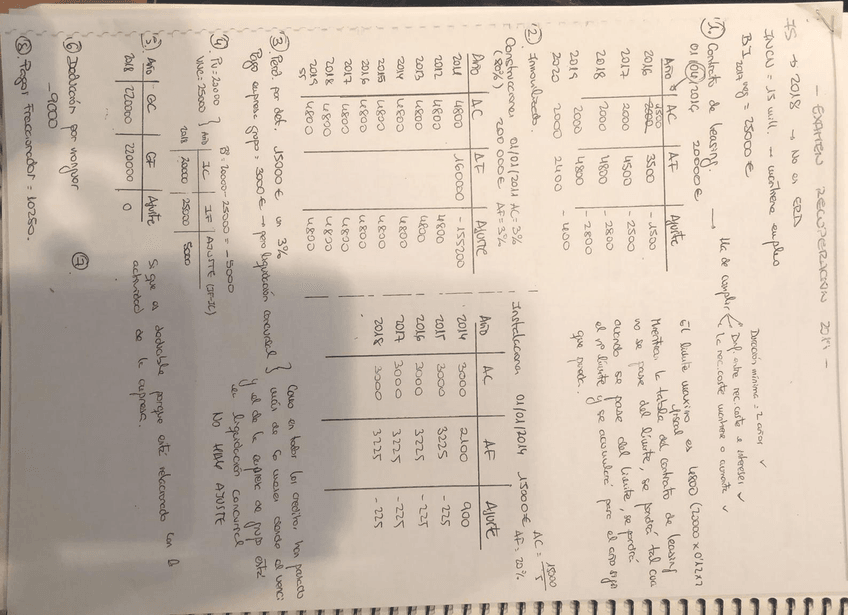 - EXAMEN RECUPERACIÓN 2019 -
FS → 2018 → No es ERD
INCN = 15 mill. → mantiene empleo
BI 2017 neg = 25000 €
1. Contrato de leasing. → Ha de cumplir
Duración mínima = 2 años ✓
Dif. entre rec. coste e intereses ✓
La rec. coste mantiene o aumenta ✓
01/04/2016 20000 €
Año AC AF Ajuste
2016 1500 3500 -1500
2017 2000 4500 -2500
2018 2000 4800 -2800
2019 2000 4800 -2800
2020 2000 2400 -400
El límite máximo fiscal es 4800 (20000 x 0'12 x 2
Mientras la tabla del contrato de leasing
no se pase del límite, se pondrá tal cual
cuando se pase del límite, se pondrá
el nº límite y se acumulará para el año sigu
que pueda.
2) Inmovilizado.
Construcciones 01/01/2011 AC = 3%
(80%) 200 000 € AF = 3%
Año AC AF Ajuste
2011 4800 160000 -155200
2012 4800 4800
2013 4800 4800
2014 4800 4800
2015 4800 4800
2016 4800 4800
2017 4800 4800
2018 4800 4800
2019 4800
55
Instalaciones 01/01/2014 15000 € AC = 15000/5
AF = 20%
Año AC AF Ajuste
2014 3000 2100 900
2015 3000 3225 -225
2016 3000 3225 -225
2017 3000 3225 -225
2018 3000 3225 -225
3) Perd. por det. 15000 € un 3%
Pago empresa grupo = 3000 € → pero liquidación concursal
Como en todos los créditos han pasado
más de 6 meses desde el venci
y el de la empresa de grupo está
en liquidación concursal
NO HAY AJUSTE
4) PV = 20000
VNC = 25000
Bº = 20000 - 25000 = -5000
Año IC IF AJUSTE (IF-IC)
2018 20000 25000 5000
5) Año GC GF Ajuste
2018 220000 220000 0
Si que es deducible porque está relacionado con la
actividad de la empresa.
6) Deducción por
-9000
7)
8) Pagos Fraccionados = 10250.